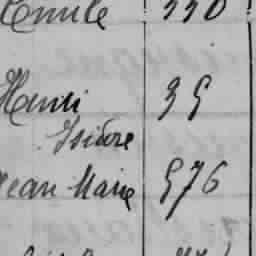 Emile 330
Henri 35
Isidore
Jean Marie 576